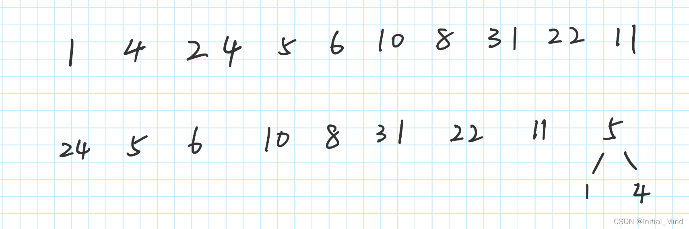 1 4 24 5 6 10 8 31 22 11
24 5 6 10 8 31 22 11 5
1 4
CSDN @Initial_Mind